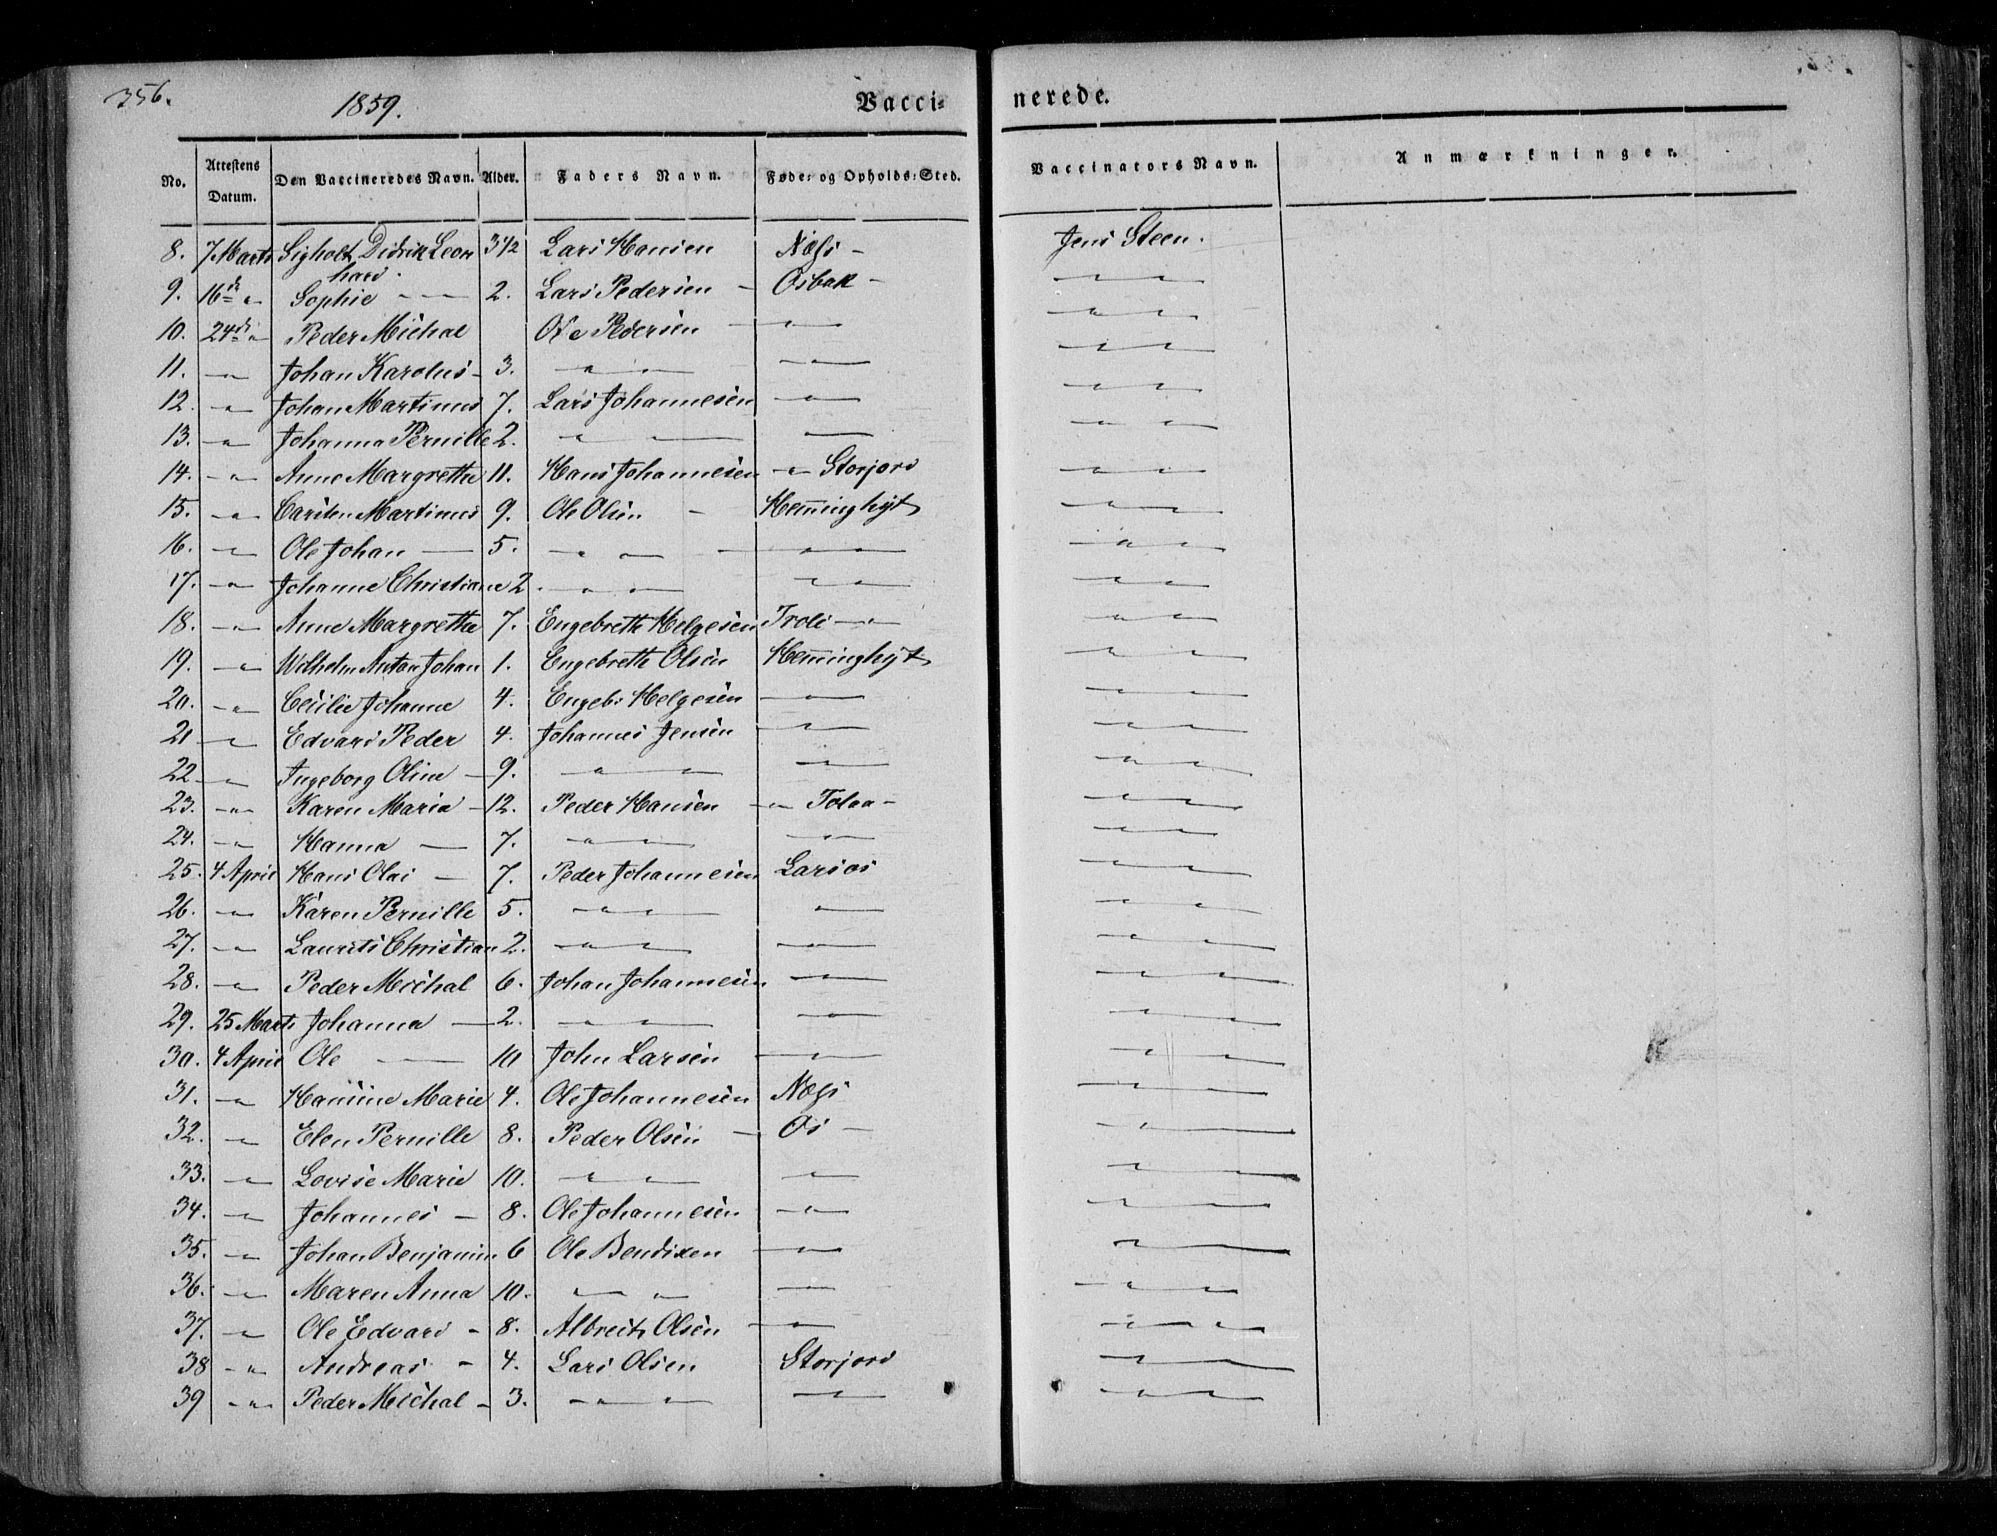 356.
1859.
Vacci- nerede.
No. Attestens Datum. Den Vaccineredes Navn. Alder. Faders Navn. Føde- og Opholds-Sted. Vaccinators Navn. Anmærkninger.
8. 7 Marts Sigholt Didrik Leon 3 1/2 Lars Hansen Næss - Jens Steen.
hard.
9. 16de " Sophie — 2. Lars Pedersen - Osbak - " "
10. 24de " Peder Michal Ole Pedersen - " " "
11. " Johan Karolus - 3. " " " " "
12. " Johan Martinus 7. Lars Johannesen " " "
13. " Johanna Pernille 2. " " " " "
14. " Anne Margrethe 11. Hans Johannesen " Storjord " "
15. " Carsten Martinus 9. Ole Olsen - Hemminghyt " "
16. " Ole Johan — 5. " " " " " "
17. " Johanne Christiane 2. " " " " " "
18. " Anne Margrethe 7. Engebreth Helgesen Trold — " " "
19. " Wilhelm Anton Johan 1. Engebreth Olsen Hemminghyt " "
20. " Cecilie Johanne 4. Engebr Helgesen " " "
21 " Edvard Peder 4. Johannes Jensen " " "
22 " Ingeborg Oline - 9. " " " " "
23. " Karen Maria - 12. Peder Hansen " Tolaa - " "
24. " Hanna — 7. " " " " "
25. 4 April Hans Olai - 7. Peder Johannesen Larsos " "
26. " Karen Pernille 5. " " " " "
27. " Laurits Christian 2. " " " " "
28. " Peder Michal 6. Johan Johannesen " " "
29. 25 Marts Johanna — 2. " " " " "
30. 4 April Ole — 10 John Larsen " " "
31. " Hansine Marie 4. Ole Johannesen Næss " "
32. " Elen Pernille 8. Peder Olsen - Os - " "
33. " Lovise Marie 10. " " " " "
34. " Johannes - 8. Ole Johannesen " " "
35. " Johan Benjamin 6 Ole Bendixen " " "
36. " Maren Anna 10. " " " " "
37. " Ole Edvard - 8. Albreit Olsen " " "
38 " Andreas - 4. Lars Olsen Storjord " "
39 " Peder Michal - 3. " " " " "